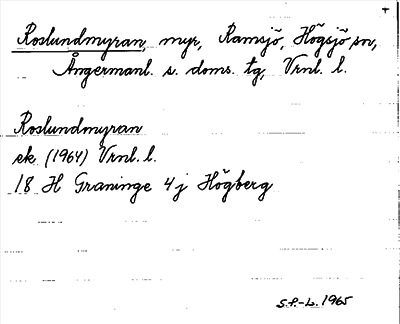 Roslundmyran, myr, Ramsjö, Högsjö sn,
Ångermanl. s. doms. tg, Vrnl. l.
Roslundmyran
ek. (1964) Vrnl. l.
18 H Graninge 4j Högberg
S.P.-L. 1965